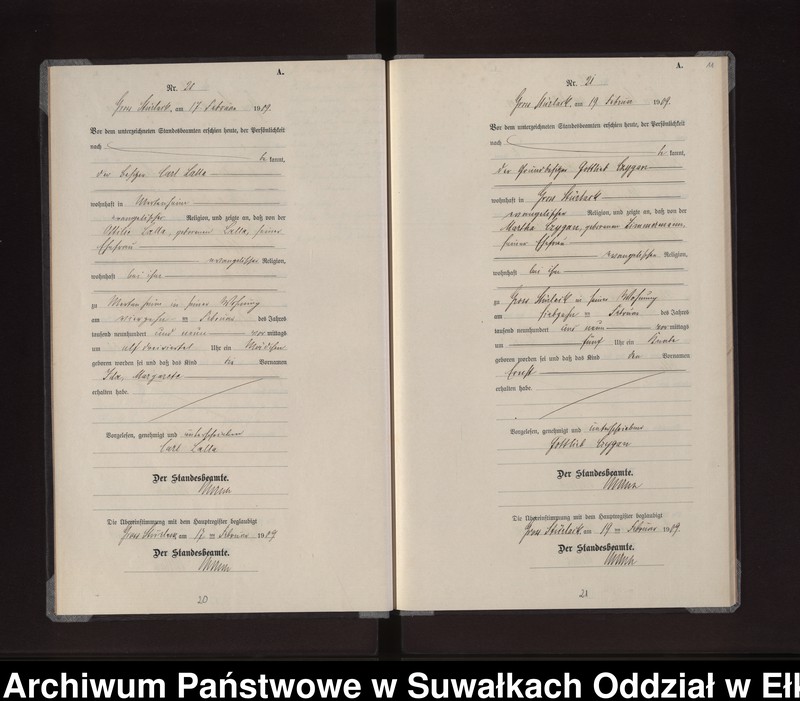 A.
Nr. 20
Gross Stürlack, am 17 Februar 1909.
Vor dem unterzeichneten Standesbeamten erschien heute, der Persönlichkeit
nach
be kannt,
der Besitzer Carl Lalla
wohnhaft in Martenheim
evangelischer Religion, und zeigte an, daß von der
Lalla, geborenen Lalla, seiner
Ehefrau
evangelischer Religion,
wohnhaft bei ihm
zu Martenheim in seiner Wohnung
am vierzehn ten Februar des Jahres
tausend neunhundert und neun vor mittags
um elf dreiviertel Uhr ein Mädchen
geboren worden sei und daß das Kind die Vornamen
Ida Margarete
erhalten habe.
Vorgelesen, genehmigt und unterschrieben
Carl Lalla
Der Standesbeamte.
Die Übereinstimmung mit dem Hauptregister beglaubigt
Gross Stürlack, am 17 ten Februar 1909.
Der Standesbeamte.
20
A.
Nr. 21
Gross Stürlack, am 19 Februar 1909.
Vor dem unterzeichneten Standesbeamten erschien heute, der Persönlichkeit
nach
be kannt,
der Grundbesitzer Gottlieb Czygan
wohnhaft in Gross Stürlack
evangelischer Religion, und zeigte an, daß von der
Martha Czygan, geborenen Zimmermann,
seiner Ehefrau
evangelischer Religion,
wohnhaft bei ihm
zu Gross Stürlack in seiner Wohnung
am siebzehn ten Februar des Jahres
tausend neunhundert und neun vor mittags
um fünf Uhr ein Knabe
geboren worden sei und daß das Kind den Vornamen
Ernst
erhalten habe.
Vorgelesen, genehmigt und unterschrieben
Gottlieb Czygan
Der Standesbeamte.
Die Übereinstimmung mit dem Hauptregister beglaubigt
Gross Stürlack, am 19 ten Februar 1909.
Der Standesbeamte.
21
Archiwum Państwowe w Suwałkach Oddział w Ełk